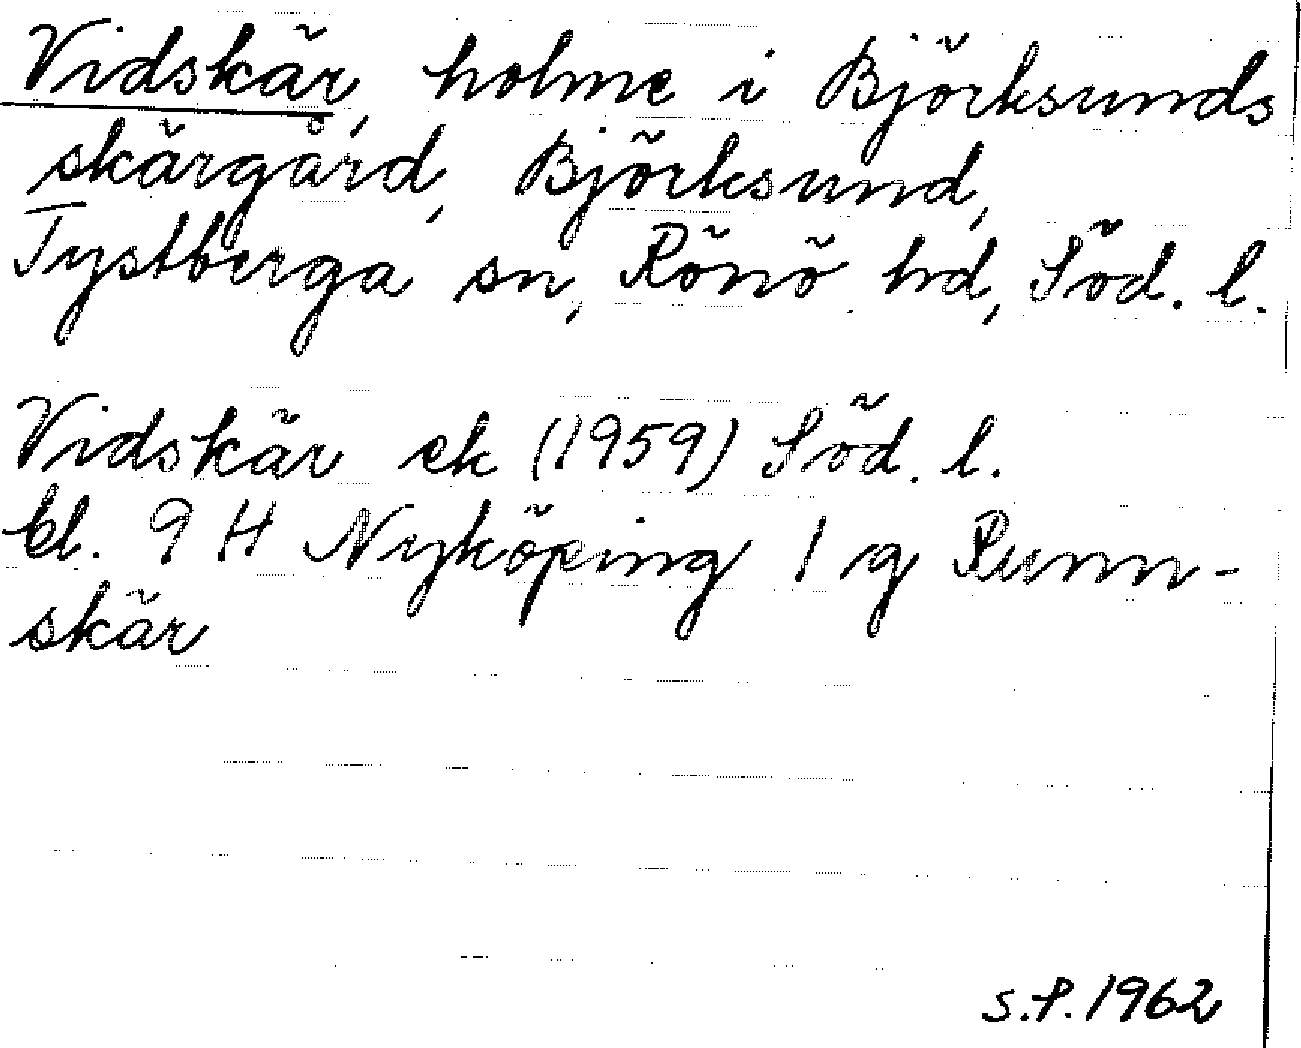 Vidskär, holme i Björksunds
skärgård, Björksund,
Tystberga sn, Rönö hd, Söd. l.
Vidskär ek (1959) Söd. l.
bl. 9 H Nyköping 1 g Runn-
skär
S.P. 1962